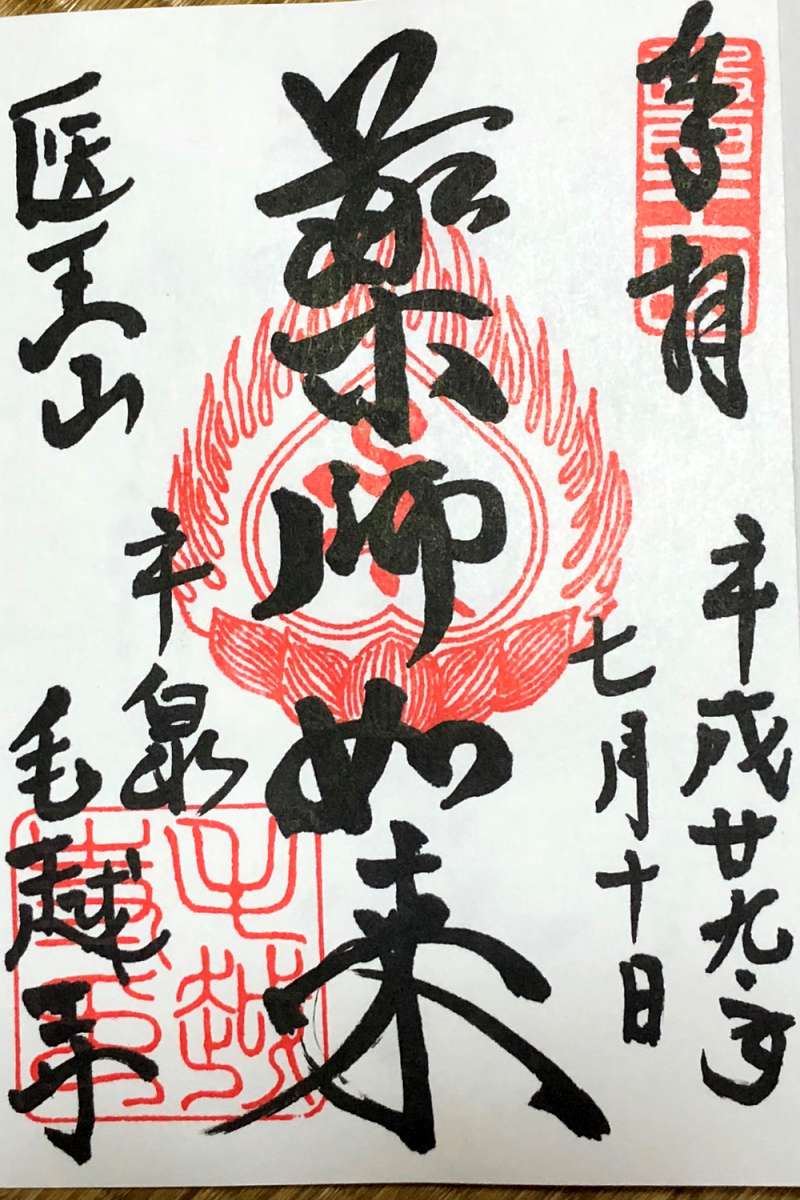 奉拝
平成廿九年
七月十日
薬師如来
医王山
平泉
毛越寺